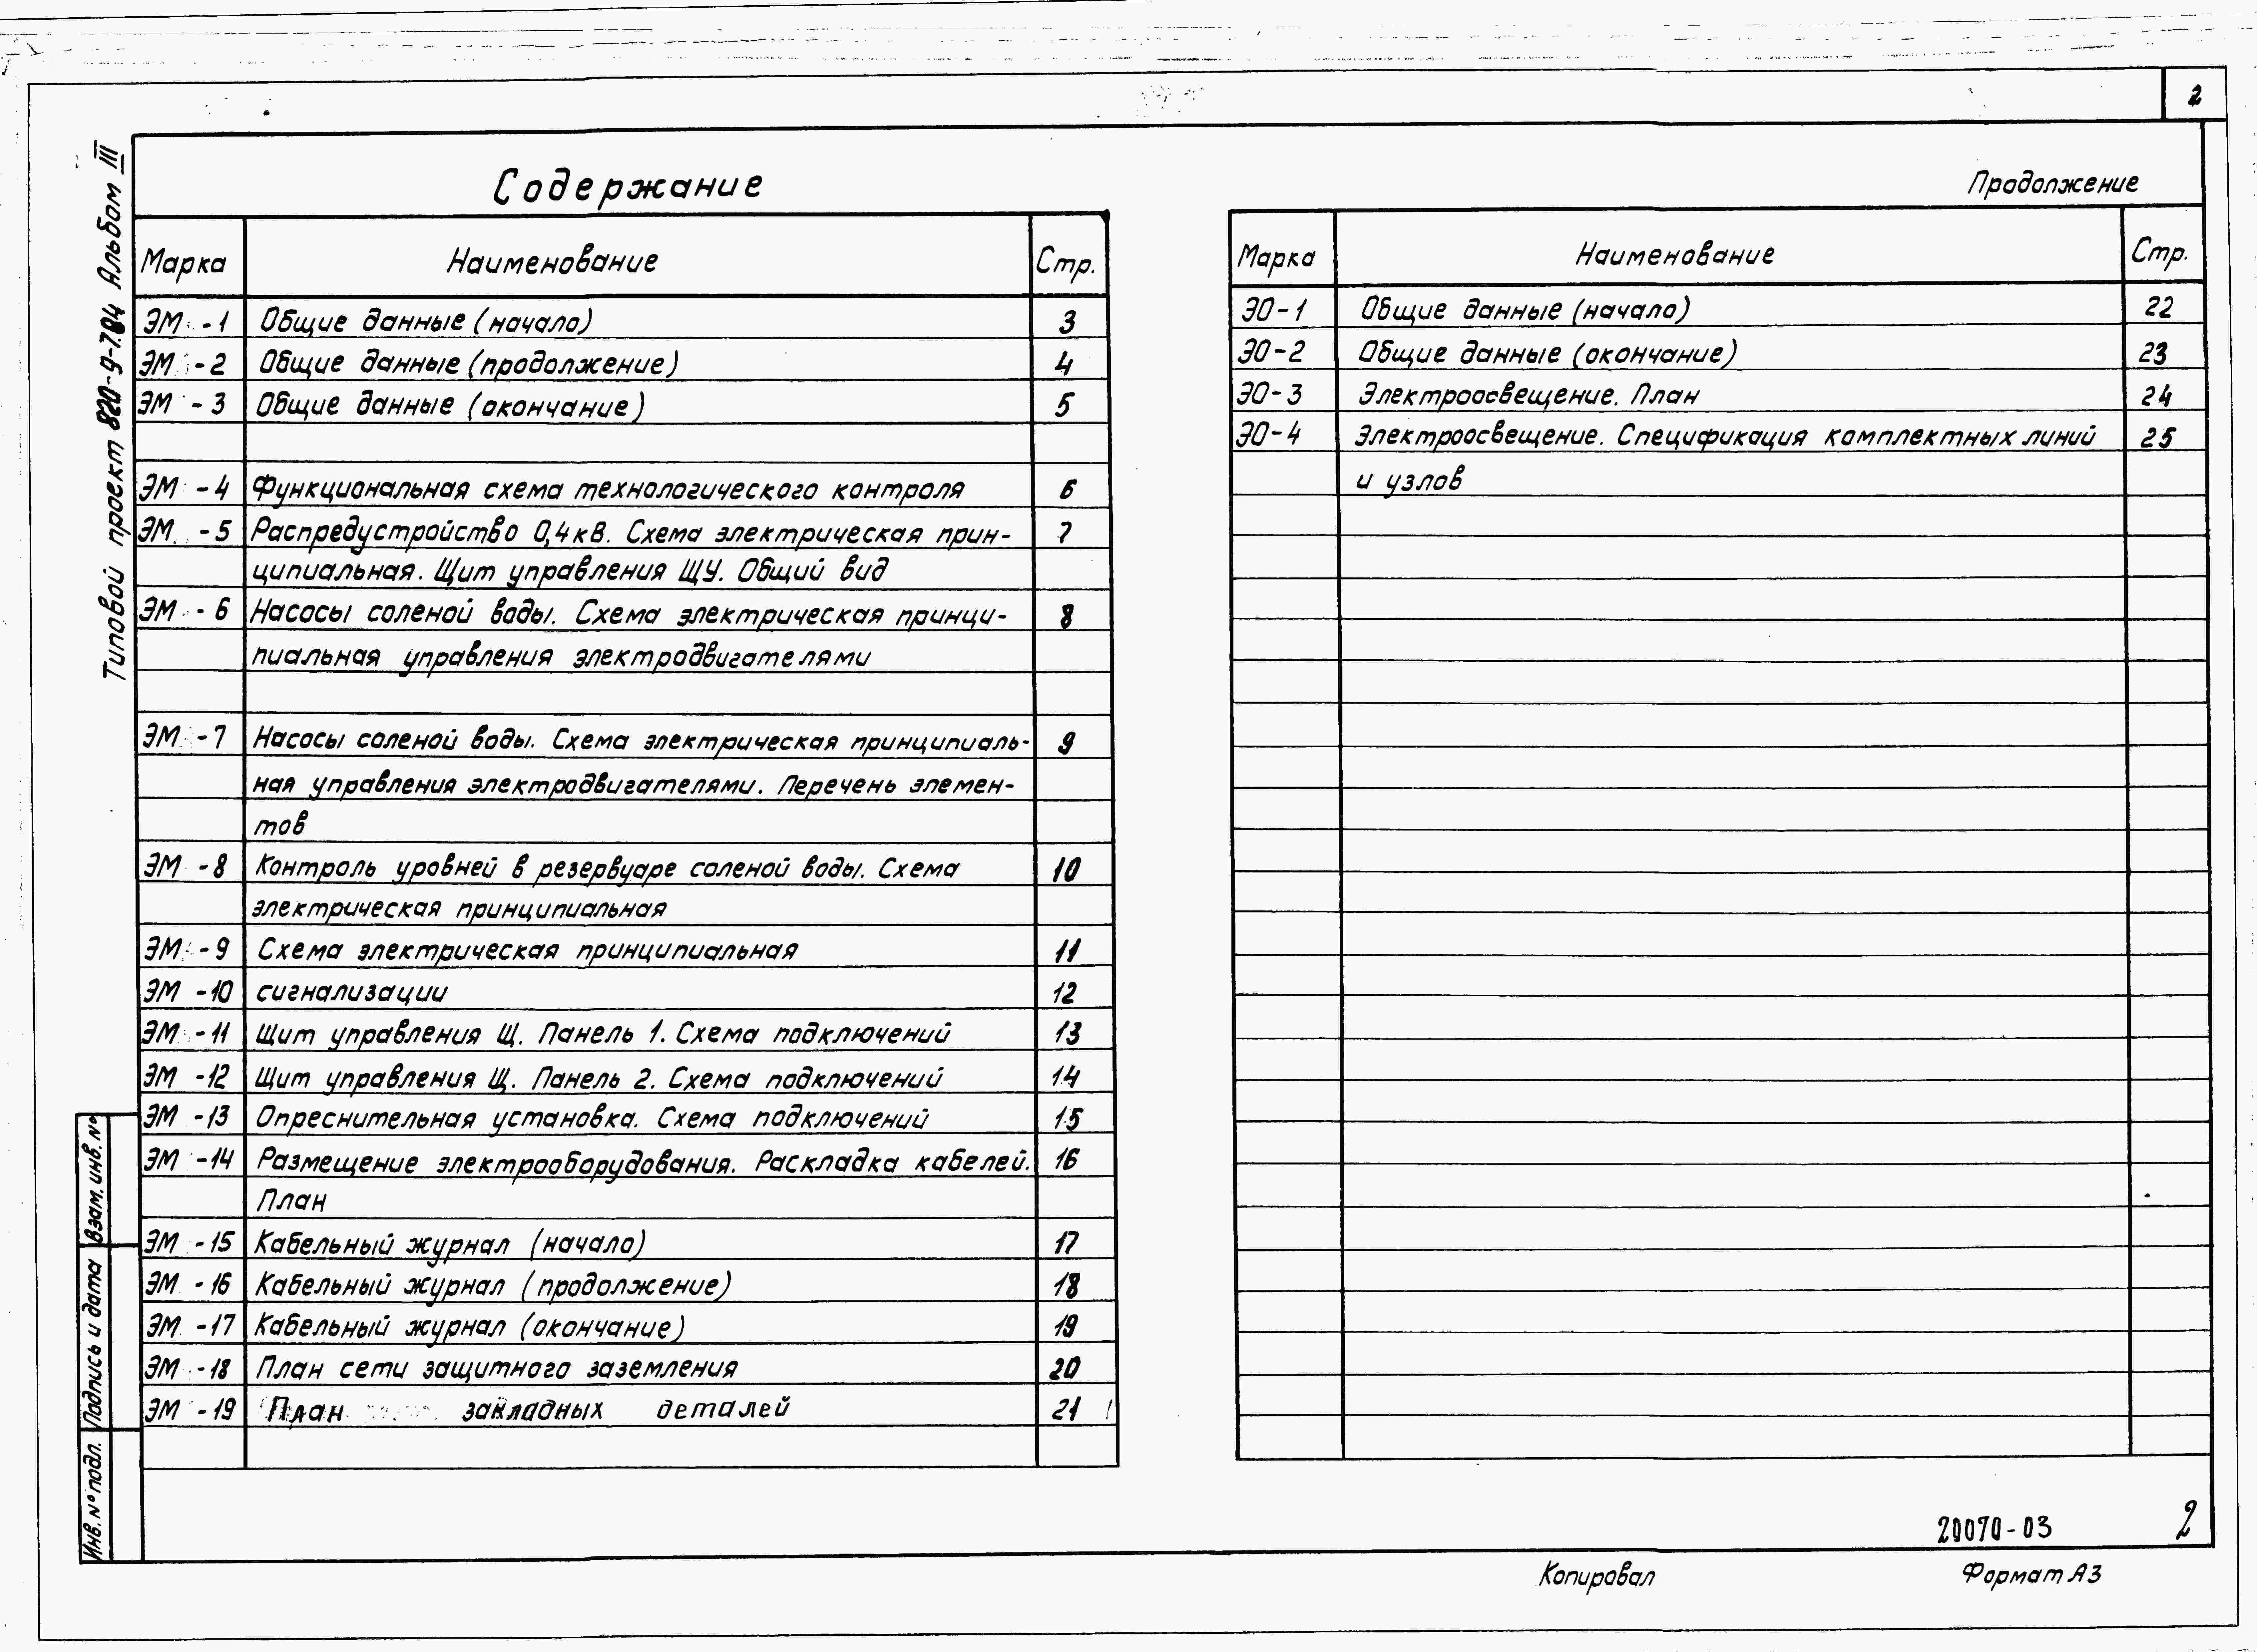 2
Типовой проект 820-9-7.84 Альбом III
Содержание
Марка Наименование Стр.
ЭМ -1 Общие данные (начало) 3
ЭМ -2 Общие данные (продолжение) 4
ЭМ -3 Общие данные (окончание) 5
ЭМ -4 Функциональная схема технологического контроля 6
ЭМ -5 Распредустройство 0,4кВ. Схема электрическая прин- 7
ципиальная. Щит управления ЩУ. Общий вид
ЭМ -6 Насосы соленой воды. Схема электрическая принци- 8
пиальная управления электродвигателями
ЭМ -7 Насосы соленой воды. Схема электрическая принципиаль- 9
ная управления электродвигателями. Перечень элемен-
тов
ЭМ -8 Контроль уровней в резервуаре соленой воды. Схема 10
электрическая принципиальная
ЭМ -9 Схема электрическая принципиальная 11
ЭМ -10 сигнализации 12
ЭМ -11 Щит управления Щ. Панель 1. Схема подключений 13
ЭМ -12 Щит управления Щ. Панель 2. Схема подключений 14
ЭМ -13 Опреснительная установка. Схема подключений 15
ЭМ -14 Размещение электрооборудования. Раскладка кабелей. 16
План
ЭМ -15 Кабельный журнал (начало) 17
ЭМ -16 Кабельный журнал (продолжение) 18
ЭМ -17 Кабельный журнал (окончание) 19
ЭМ -18 План сети защитного заземления 20
ЭМ -19 План закладных деталей 21
Продолжение
Марка Наименование Стр.
ЭО-1 Общие данные (начало) 22
ЭО-2 Общие данные (окончание) 23
ЭО-3 Электроосвещение. План 24
ЭО-4 Электроосвещение. Спецификация комплектных линий 25
и узлов
Взам. инв. №
Подпись и дата
Инв. № подл.
20070-03 2
Копировал Формат А3